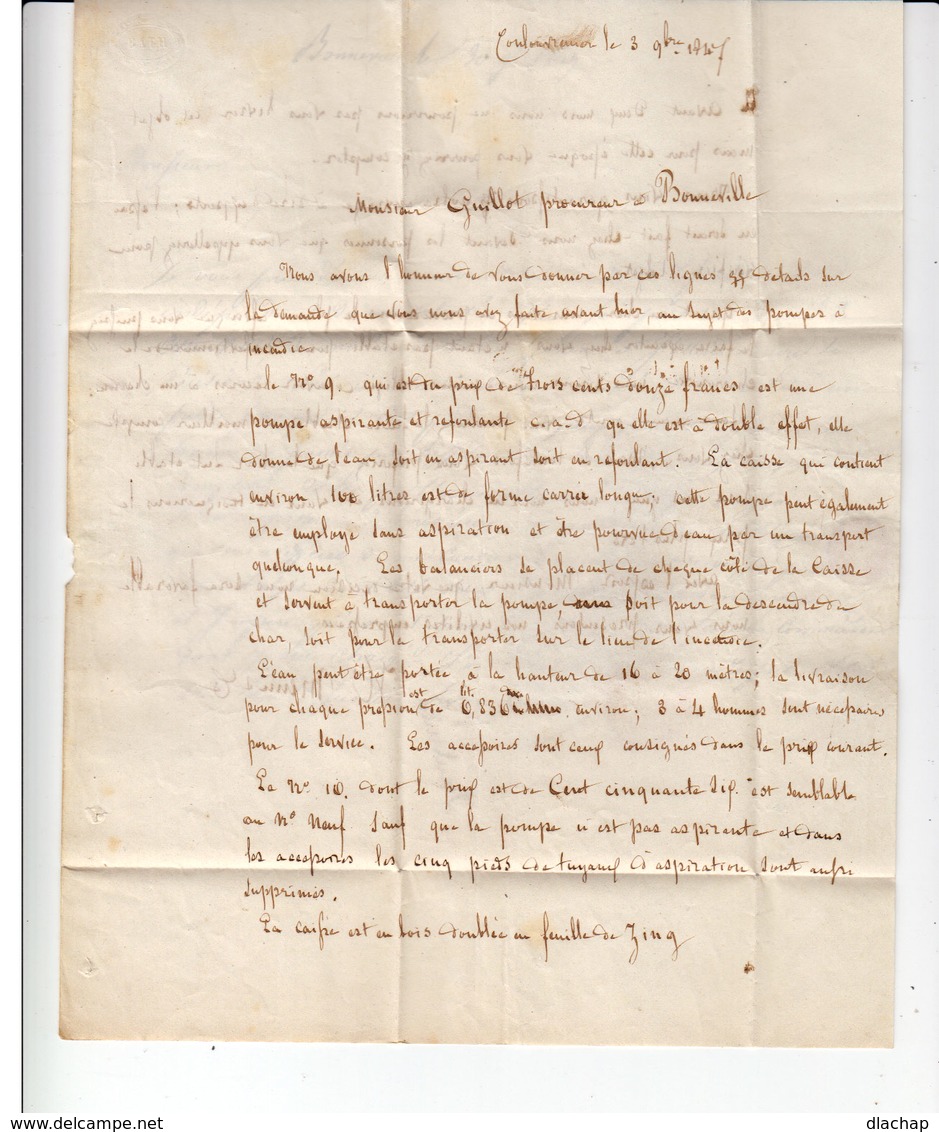 Coulouvrenier le 3 9bre 1845
Monsieur Guillot procureur à Bonneville
Nous avons l'honneur de vous donner par ces lignes qq détails sur
la demande que vous nous avez faite avant hier, au sujet des pompes à
incendie
le No 9. qui est du prix de trois cents douze francs est une
pompe aspirante et refoulante c.a.d qu'elle est à double effet, elle
donne de l'eau soit en aspirant soit en refoulant. La caisse qui contient
environ 100 litres est de forme carrée longue; cette pompe peut également
être employé sans aspiration et être pourvue d'eau par un transport
quelconque. Les balanciers se placent de chaque côté de la Caisse
et servent à transporter la pompe, soit pour la descendre du
char, soit pour la transporter sur le lieu de l'incendie.
L'eau peut être portée à la hauteur de 16 à 20 mètres; la livraison
pour chaque pression est de 6,836 lit. environ; 3 à 4 hommes sont nécessaires
pour le service. Les accessoires sont ceux consignés dans le prix courant.
Le No 10. dont le prix est de Cent cinquante six est semblable
au No Neuf sauf que la pompe n'est pas aspirante et dans
les accessoires les cinq pieds de tuyaux d'aspiration sont aussi
supprimés.
La caisse est en bois doublée en feuille de Zinq
dlachap